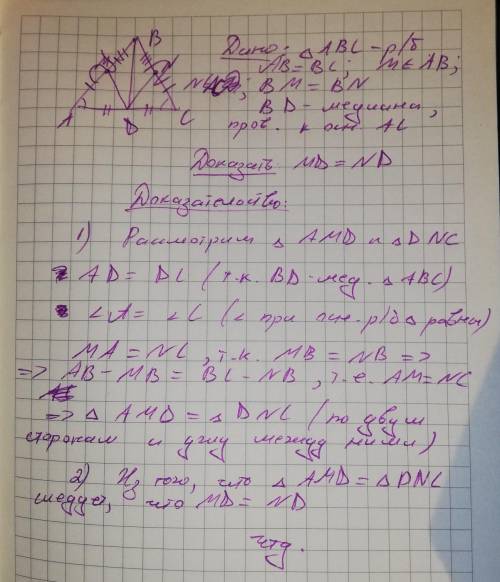 B
A
D
C
Дано: △ ABC - р/б
AB = BC; M ∈ AB;
N ; BM = BN
BD - медиана,
пров. к осн. AC
Доказать MD = ND
Доказательство:
1) Рассмотрим △ AMD и △ DNC
AD = DC (т.к. BD - мед. △ ABC)
∠A = ∠C (∠ при осн. р/б △ равны)
MA = NC, т.к. MB = NB =>
=> AB - MB = BC - NB, т.е. AM = NC
=> △ AMD = △ DNC (по двум
сторонам и углу между ними)
2) Из того, что △ AMD = △ DNC
следует, что MD = ND
чтд.